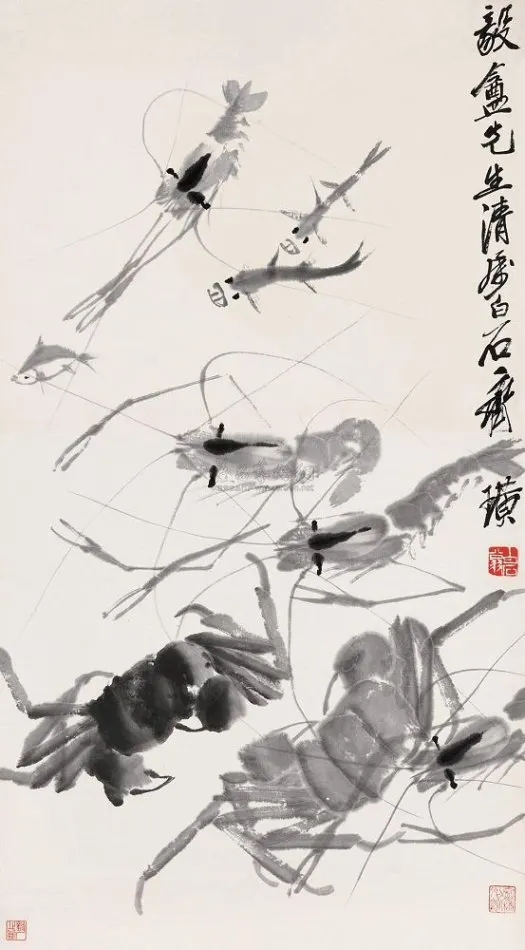 毅盦先生清屬白石齊璜